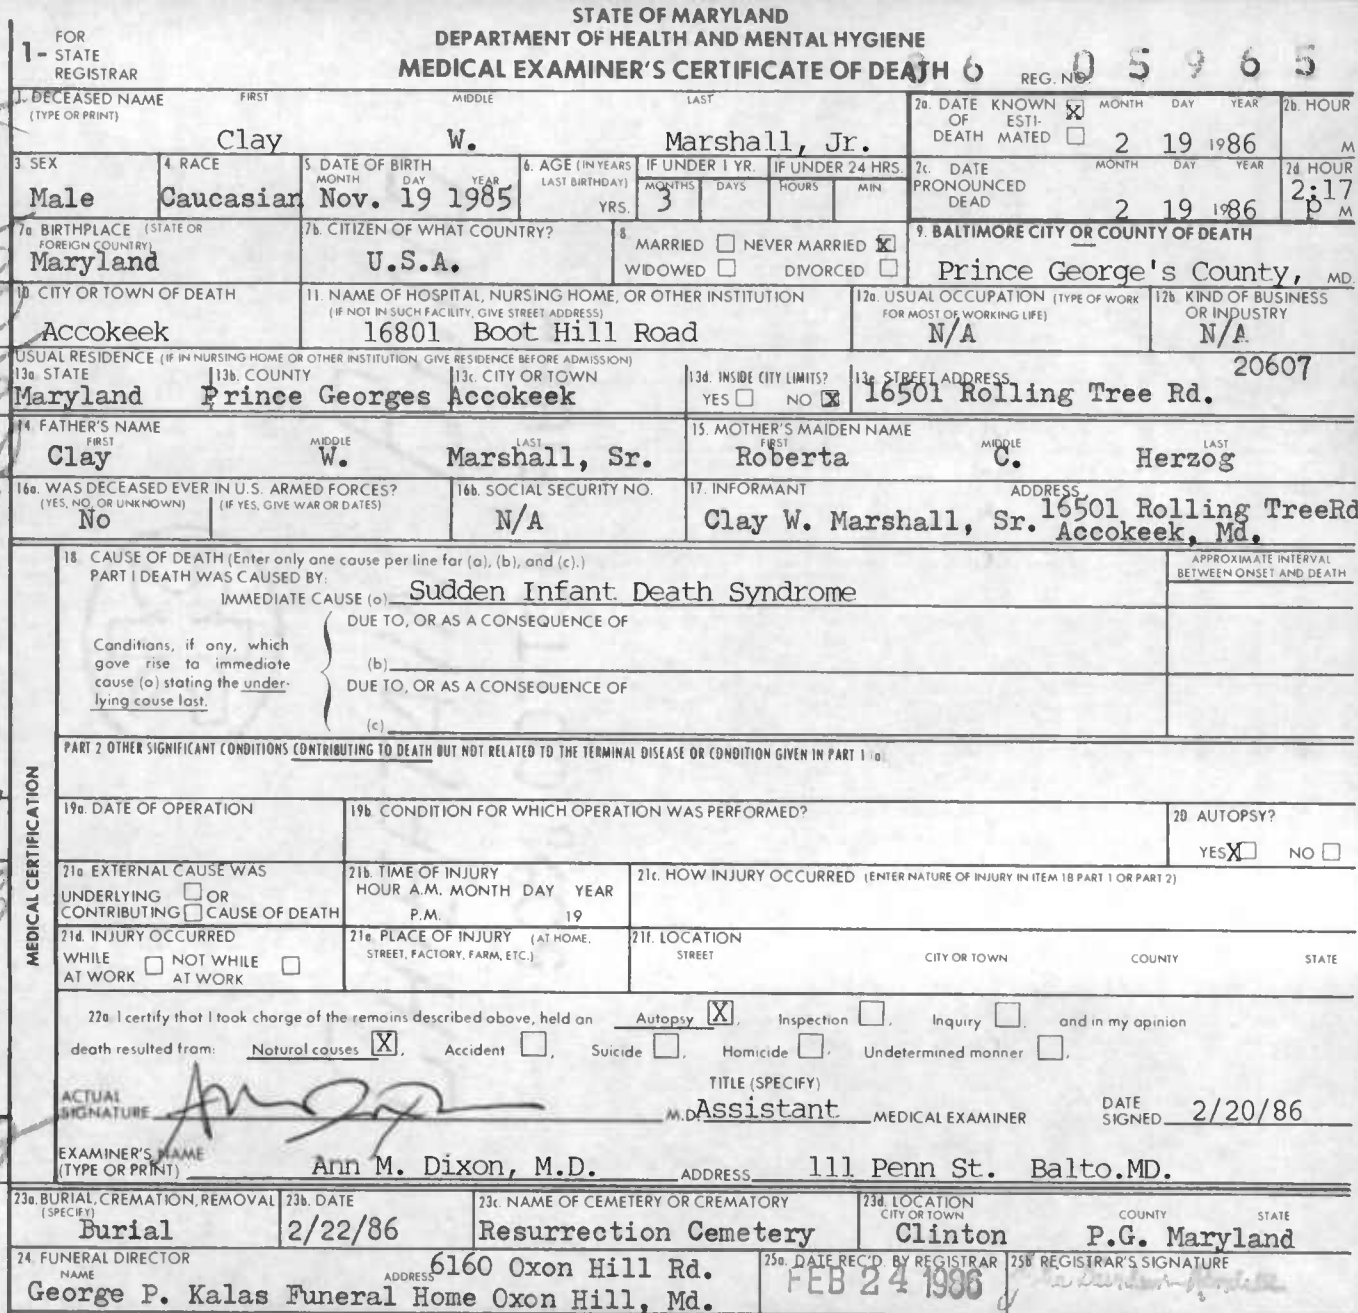 STATE OF MARYLAND
DEPARTMENT OF HEALTH AND MENTAL HYGIENE
MEDICAL EXAMINER'S CERTIFICATE OF DEATH
1- FOR STATE REGISTRAR
REG. NO. 6 05965
1. DECEASED NAME (TYPE OR PRINT) FIRST MIDDLE LAST
Clay W. Marshall, Jr.
2a. DATE OF DEATH KNOWN X ESTIMATED MONTH DAY YEAR
2 19 1986
2b. HOUR M
3. SEX
Male
4. RACE
Caucasian
5. DATE OF BIRTH MONTH DAY YEAR
Nov. 19 1985
6. AGE (IN YEARS LAST BIRTHDAY) YRS.
IF UNDER 1 YR. MONTHS DAYS
3
IF UNDER 24 HRS. HOURS MIN
2c. DATE PRONOUNCED DEAD MONTH DAY YEAR
2 19 1986
2d HOUR
2:17 P M
7a BIRTHPLACE (STATE OR FOREIGN COUNTRY)
Maryland
7b. CITIZEN OF WHAT COUNTRY?
U.S.A.
8. MARRIED NEVER MARRIED X
WIDOWED DIVORCED
9. BALTIMORE CITY OR COUNTY OF DEATH
Prince George's County, MD.
10. CITY OR TOWN OF DEATH
Accokeek
11. NAME OF HOSPITAL, NURSING HOME, OR OTHER INSTITUTION
(IF NOT IN SUCH FACILITY, GIVE STREET ADDRESS)
16801 Boot Hill Road
12a. USUAL OCCUPATION (TYPE OF WORK FOR MOST OF WORKING LIFE)
N/A
12b. KIND OF BUSINESS OR INDUSTRY
N/A
USUAL RESIDENCE (IF IN NURSING HOME OR OTHER INSTITUTION, GIVE RESIDENCE BEFORE ADMISSION)
13a. STATE
Maryland
13b. COUNTY
Prince Georges
13c. CITY OR TOWN
Accokeek
13d. INSIDE CITY LIMITS?
YES NO X
13e. STREET ADDRESS
20607
16501 Rolling Tree Rd.
14. FATHER'S NAME FIRST MIDDLE LAST
Clay W. Marshall, Sr.
15. MOTHER'S MAIDEN NAME FIRST MIDDLE LAST
Roberta C. Herzog
16a. WAS DECEASED EVER IN U.S. ARMED FORCES?
(YES, NO, OR UNKNOWN) (IF YES, GIVE WAR OR DATES)
No
16b. SOCIAL SECURITY NO.
N/A
17. INFORMANT ADDRESS
Clay W. Marshall, Sr. 16501 Rolling TreeRd
Accokeek, Md.
MEDICAL CERTIFICATION
18. CAUSE OF DEATH (Enter only one cause per line for (a), (b), and (c).)
PART I DEATH WAS CAUSED BY:
IMMEDIATE CAUSE (a) Sudden Infant Death Syndrome
APPROXIMATE INTERVAL BETWEEN ONSET AND DEATH
DUE TO, OR AS A CONSEQUENCE OF
Conditions, if any, which gave rise to immediate cause (a) stating the underlying cause last.
(b)
DUE TO, OR AS A CONSEQUENCE OF
(c)
PART 2 OTHER SIGNIFICANT CONDITIONS CONTRIBUTING TO DEATH BUT NOT RELATED TO THE TERMINAL DISEASE OR CONDITION GIVEN IN PART 1 (a)
19a. DATE OF OPERATION
19b. CONDITION FOR WHICH OPERATION WAS PERFORMED?
20 AUTOPSY?
YES X NO
21a EXTERNAL CAUSE WAS
UNDERLYING OR
CONTRIBUTING CAUSE OF DEATH
21b. TIME OF INJURY
HOUR A.M. MONTH DAY YEAR
P.M. 19
21c. HOW INJURY OCCURRED (ENTER NATURE OF INJURY IN ITEM 18 PART 1 OR PART 2)
21d. INJURY OCCURRED
WHILE AT WORK NOT WHILE AT WORK
21e. PLACE OF INJURY (AT HOME, STREET, FACTORY, FARM, ETC.)
21f. LOCATION
STREET CITY OR TOWN COUNTY STATE
22a. I certify that I took charge of the remains described above, held an Autopsy X, Inspection, Inquiry, and in my opinion
death resulted from: Natural causes X, Accident, Suicide, Homicide, Undetermined manner.
ACTUAL SIGNATURE M.D.
TITLE (SPECIFY)
Assistant MEDICAL EXAMINER
DATE SIGNED 2/20/86
EXAMINER'S NAME (TYPE OR PRINT) Ann M. Dixon, M.D. ADDRESS 111 Penn St. Balto.MD.
23a. BURIAL, CREMATION, REMOVAL (SPECIFY)
Burial
23b. DATE
2/22/86
23c. NAME OF CEMETERY OR CREMATORY
Resurrection Cemetery
23d. LOCATION CITY OR TOWN COUNTY STATE
Clinton P.G. Maryland
24. FUNERAL DIRECTOR
NAME ADDRESS 6160 Oxon Hill Rd.
George P. Kalas Funeral Home Oxon Hill, Md.
25a. DATE REC'D. BY REGISTRAR
FEB 24 1986
25b. REGISTRAR'S SIGNATURE